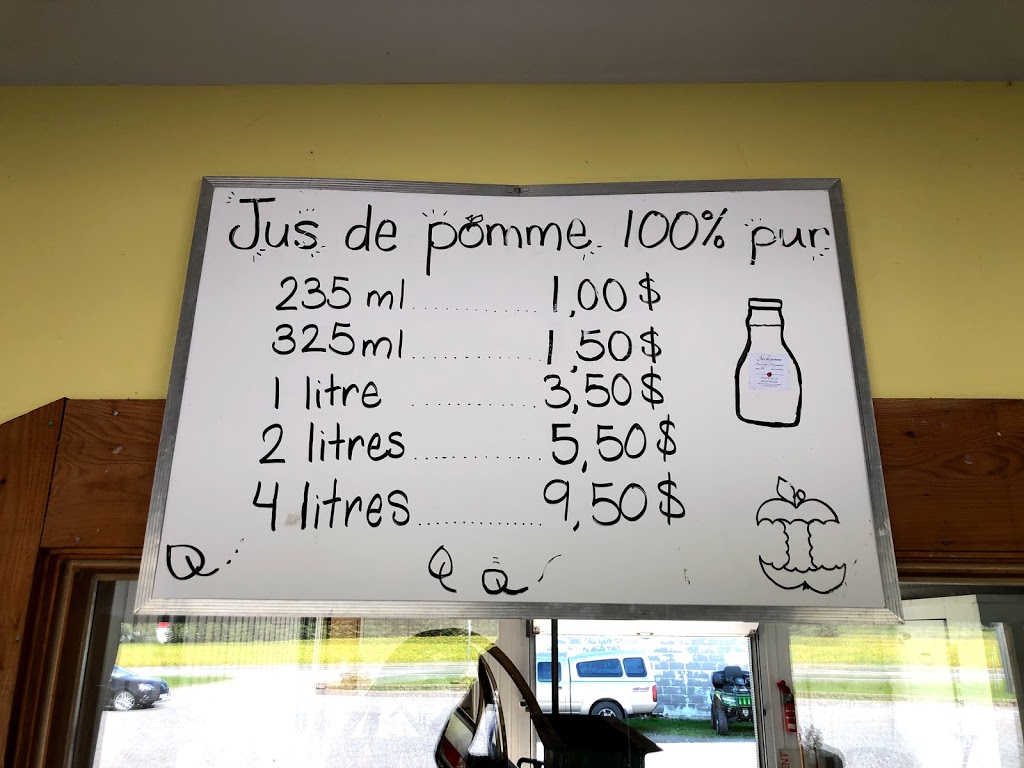 Jus de pomme 100% pur
235 ml ............ 1,00 $
325 ml ............ 1,50 $
1 litre ............ 3,50 $
2 litres ............ 5,50 $
4 litres ............ 9,50 $
Jus de pomme